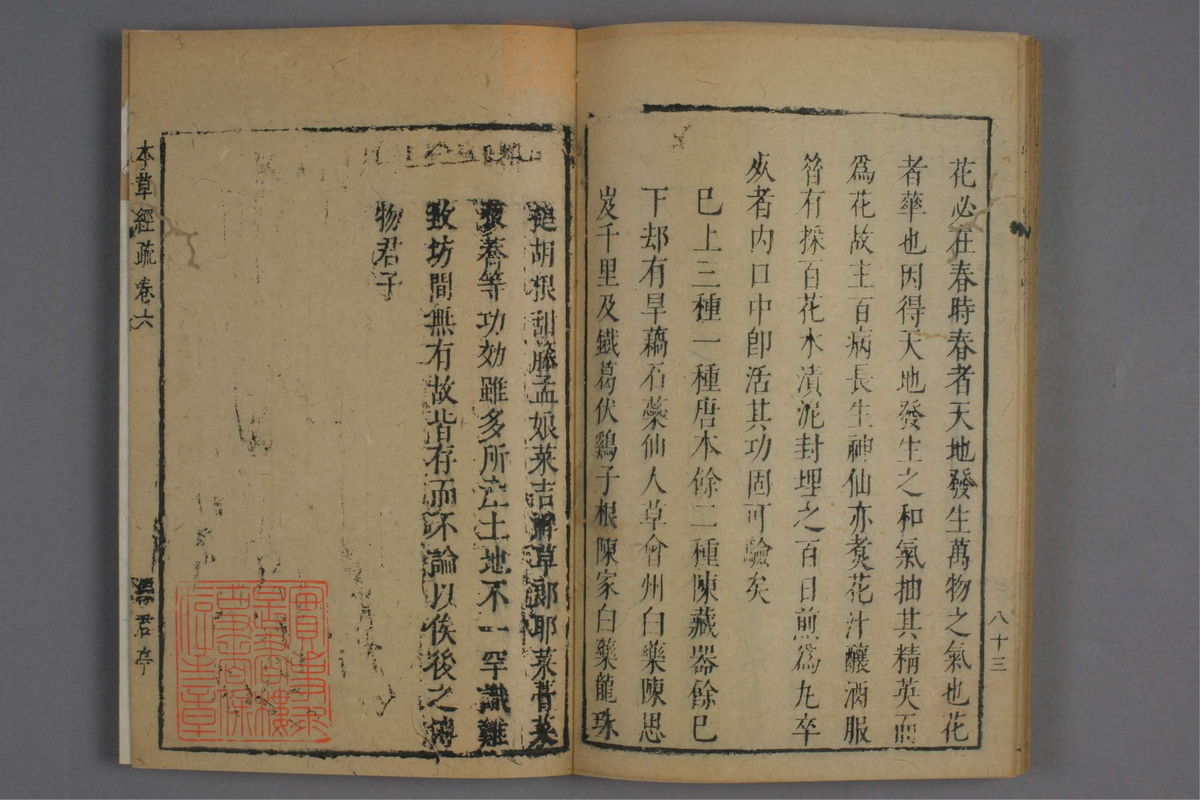 花必在春時春者天地發生萬物之氣也花
者華也因得天地發生之和氣抽其精英而
爲花故主百病長生神仙亦煑花汁釀酒服
昝有採百花水漬泥封埋之百日煎爲九卒
𣦸者内口中卽活其功固可驗矣
巳上三種一種唐本餘二種陳藏器餘巳
下却有旱藕石蘂仙人草會州白藥陳思
岌千里及鐵葛伏鷄子根陳家白藥龍珠
胡根甜藤孟娘菜吉草郎耶菜
等功効雖多所土地不一罕識難
致坊間無有故皆存而不論以俟後之
物君子
八十三
本草經疏
卷六
君亭